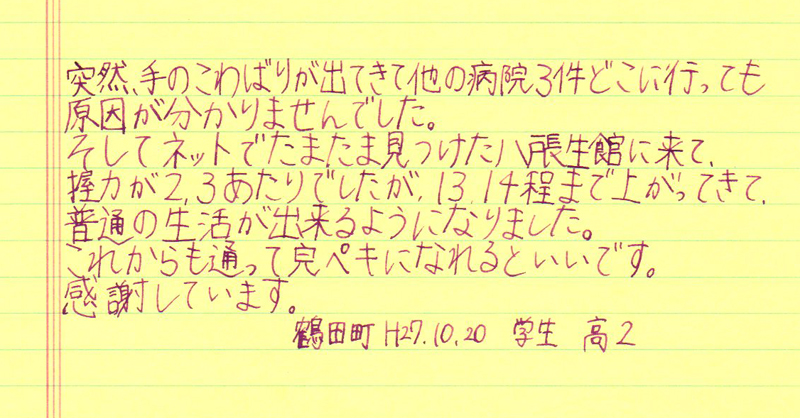 突然、手のこわばりが出てきて他の病院3件どこに行っても
原因が分かりませんでした。
そしてネットでたまたま見つけた八戸長生館に来て、
握力が2,3あたりでしたが、13,14程まで上がってきて、
普通の生活が出来るようになりました。
これからも通って完ペキになれるといいです。
感謝しています。
鶴田町 H27.10.20 学生 高2